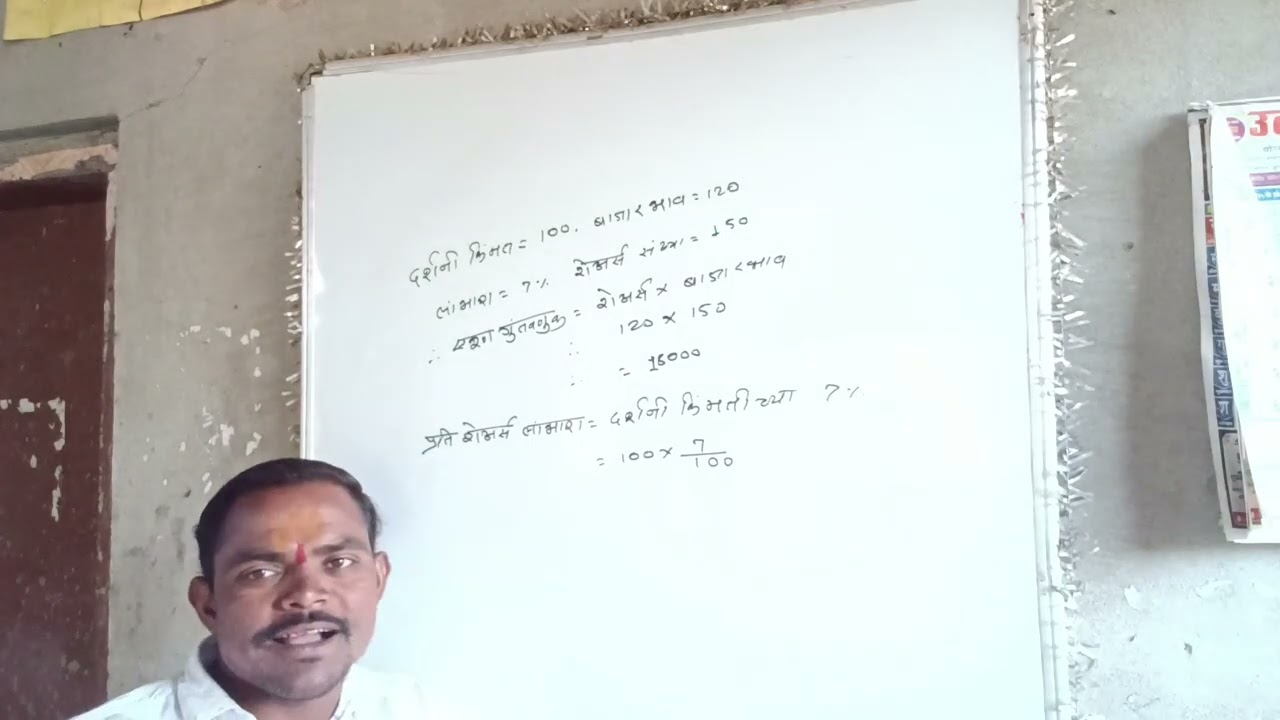 दर्शनी किंमत = 100. बाजारभाव = 120
लाभांश = 7% शेअर्स संख्या = 150
∴ एकूण गुंतवणुक = शेअर्स × बाजारभाव
∴ 120 × 150
∴ = 18000
प्रति शेअर्स लाभांश = दर्शनी किंमतीच्या 7%
= 100 × 7/100